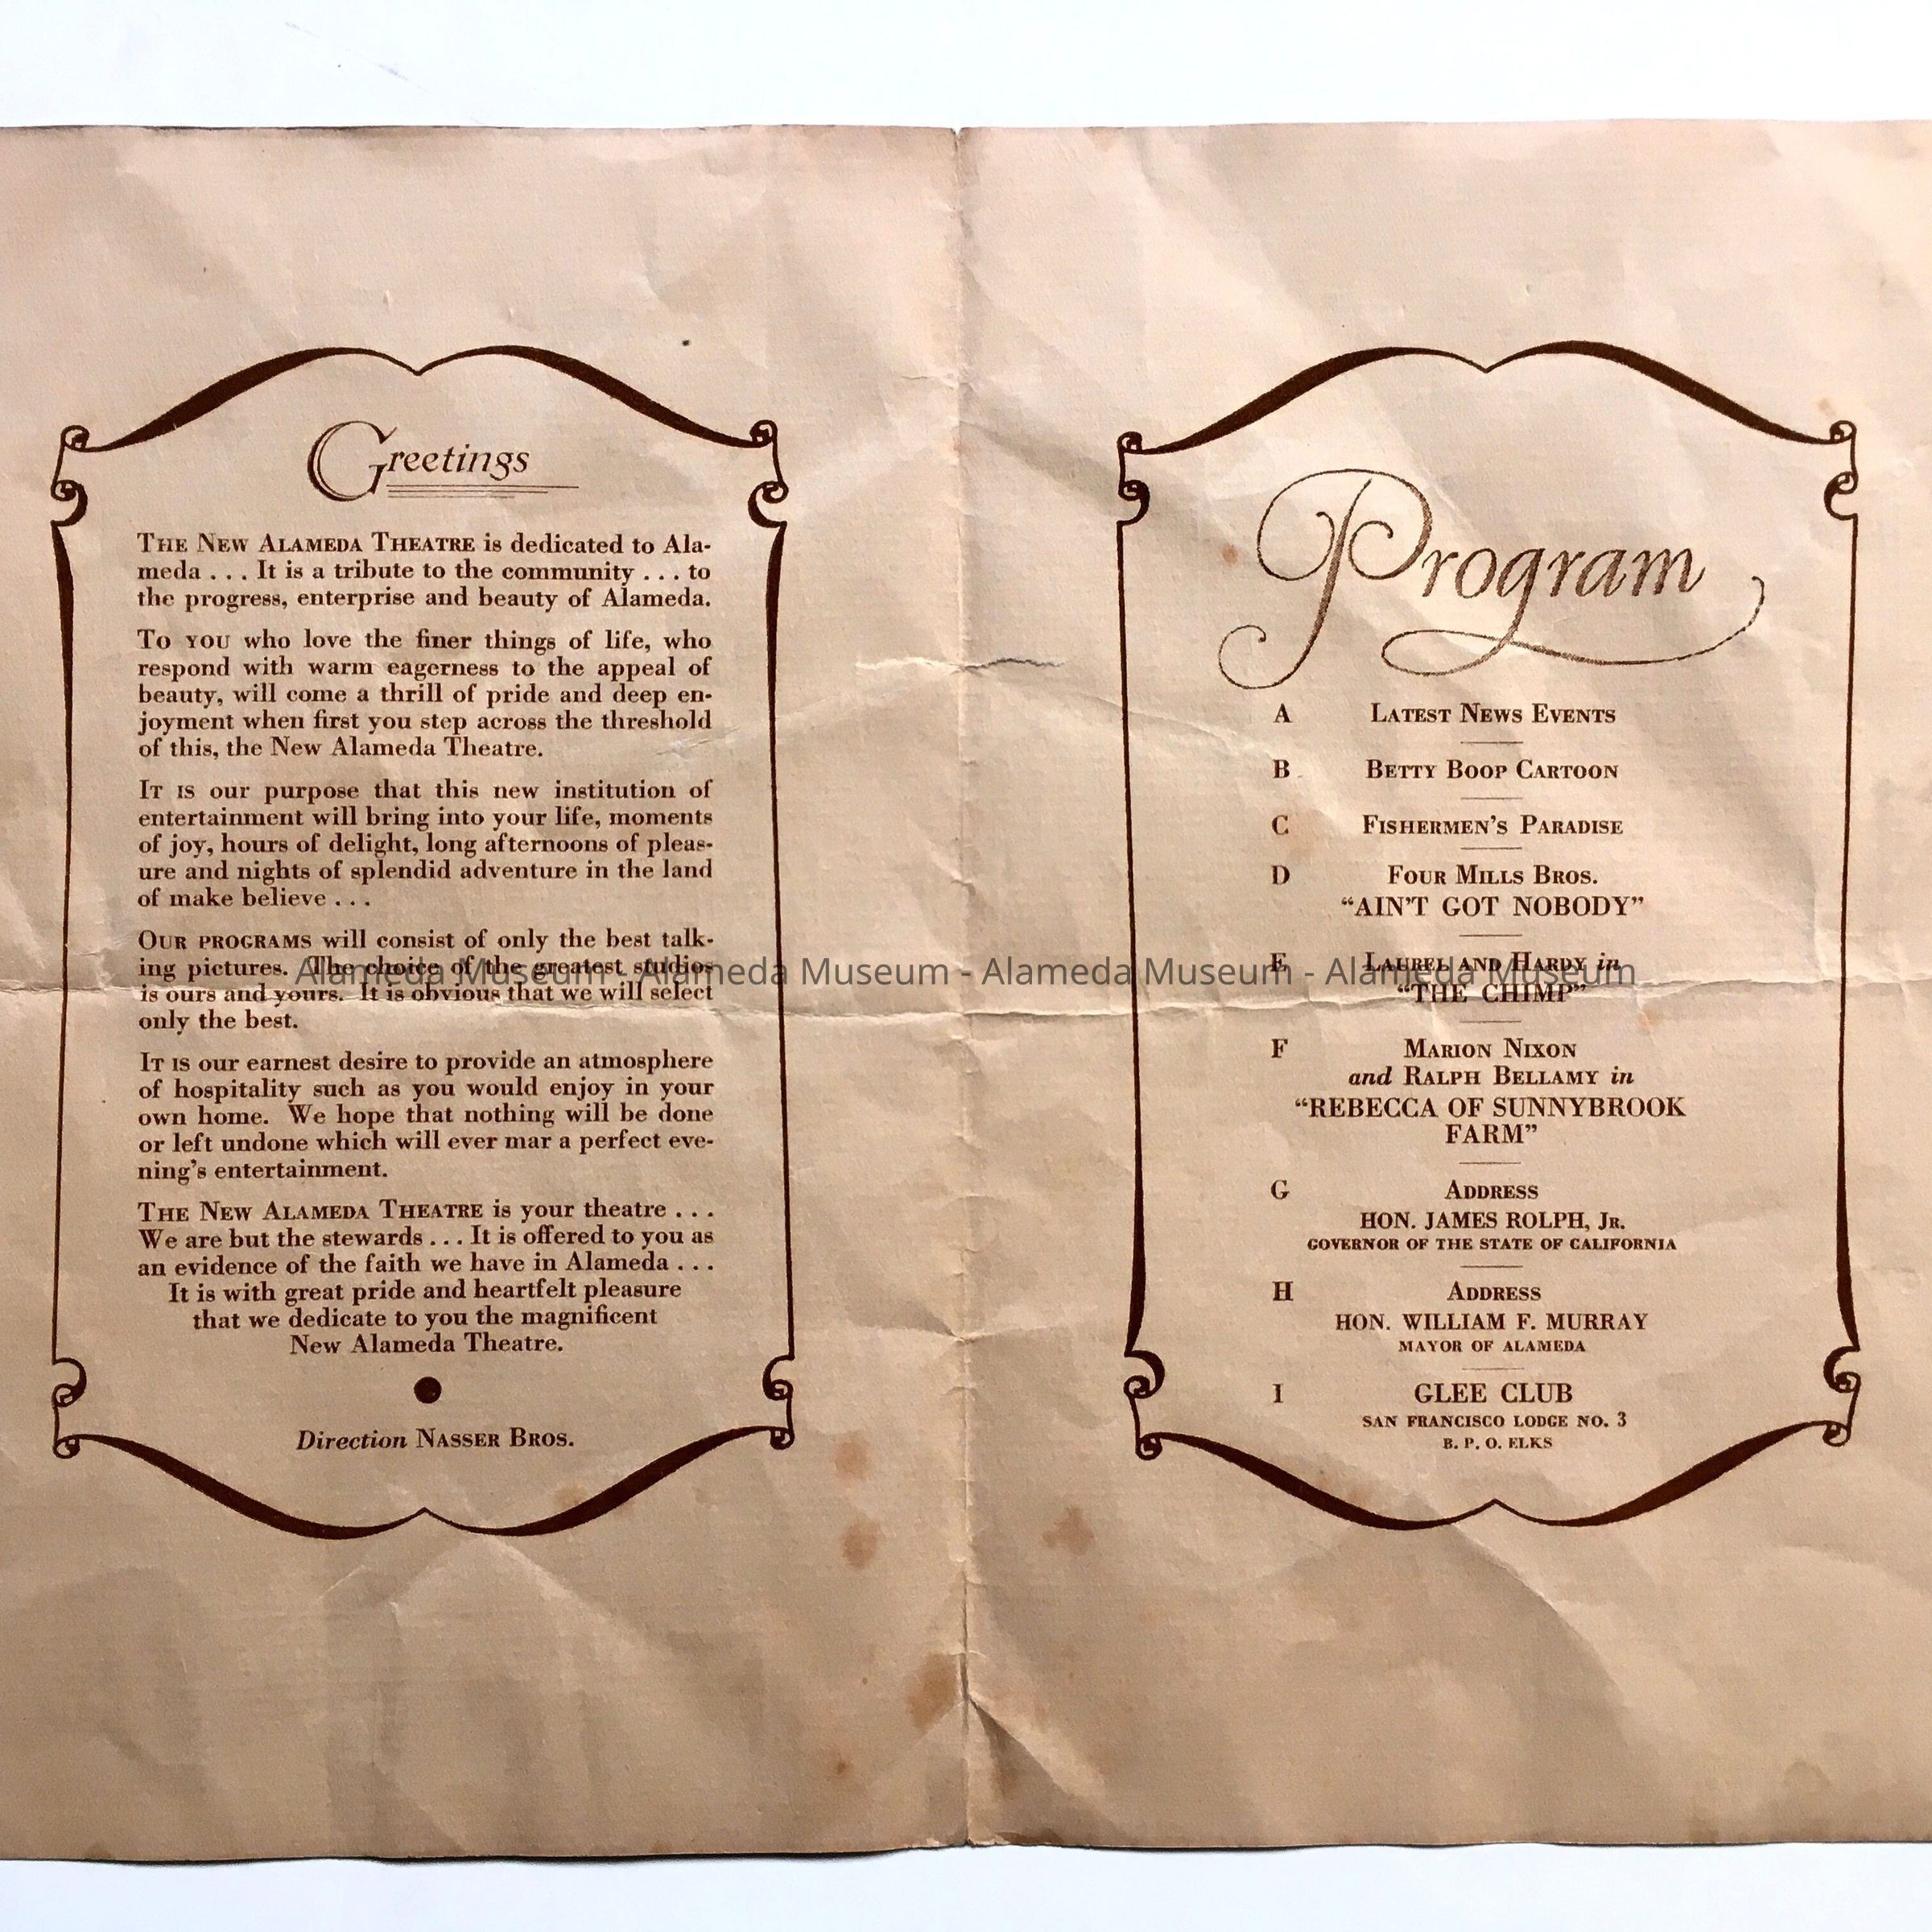 Greetings
THE NEW ALAMEDA THEATRE is dedicated to Ala-
meda . . . It is a tribute to the community . . . to
the progress, enterprise and beauty of Alameda.
TO YOU who love the finer things of life, who
respond with warm eagerness to the appeal of
beauty, will come a thrill of pride and deep en-
joyment when first you step across the threshold
of this, the New Alameda Theatre.
IT IS our purpose that this new institution of
entertainment will bring into your life, moments
of joy, hours of delight, long afternoons of pleas-
ure and nights of splendid adventure in the land
of make believe . . .
OUR PROGRAMS will consist of only the best talk-
ing pictures. The choice of the greatest studios
is ours and yours. It is obvious that we will select
only the best.
IT IS our earnest desire to provide an atmosphere
of hospitality such as you would enjoy in your
own home. We hope that nothing will be done
or left undone which will ever mar a perfect eve-
ning's entertainment.
THE NEW ALAMEDA THEATRE is your theatre . . .
We are but the stewards . . . It is offered to you as
an evidence of the faith we have in Alameda . . .
It is with great pride and heartfelt pleasure
that we dedicate to you the magnificent
New Alameda Theatre.
Direction NASSER BROS.
Program
A LATEST NEWS EVENTS
B BETTY BOOP CARTOON
C FISHERMEN'S PARADISE
D FOUR MILLS BROS.
"AIN'T GOT NOBODY"
E LAUREL AND HARDY in
"THE CHIMP"
F MARION NIXON
and RALPH BELLAMY in
"REBECCA OF SUNNYBROOK
FARM"
G ADDRESS
HON. JAMES ROLPH, JR.
GOVERNOR OF THE STATE OF CALIFORNIA
H ADDRESS
HON. WILLIAM F. MURRAY
MAYOR OF ALAMEDA
I GLEE CLUB
SAN FRANCISCO LODGE NO. 3
B. P. O. ELKS
Alameda Museum - Alameda Museum - Alameda Museum - Alameda Museum